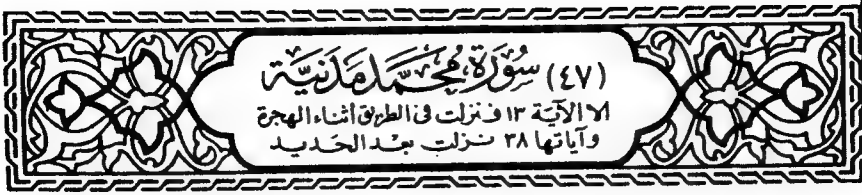 (٤٧) سُورَة مُحَمَّد مَدَنيَّة
الا الآيَة ١٣ فنزلت في الطريق أثناء الهجرة
وآياتها ٣٨ نزلت بعد الحديد